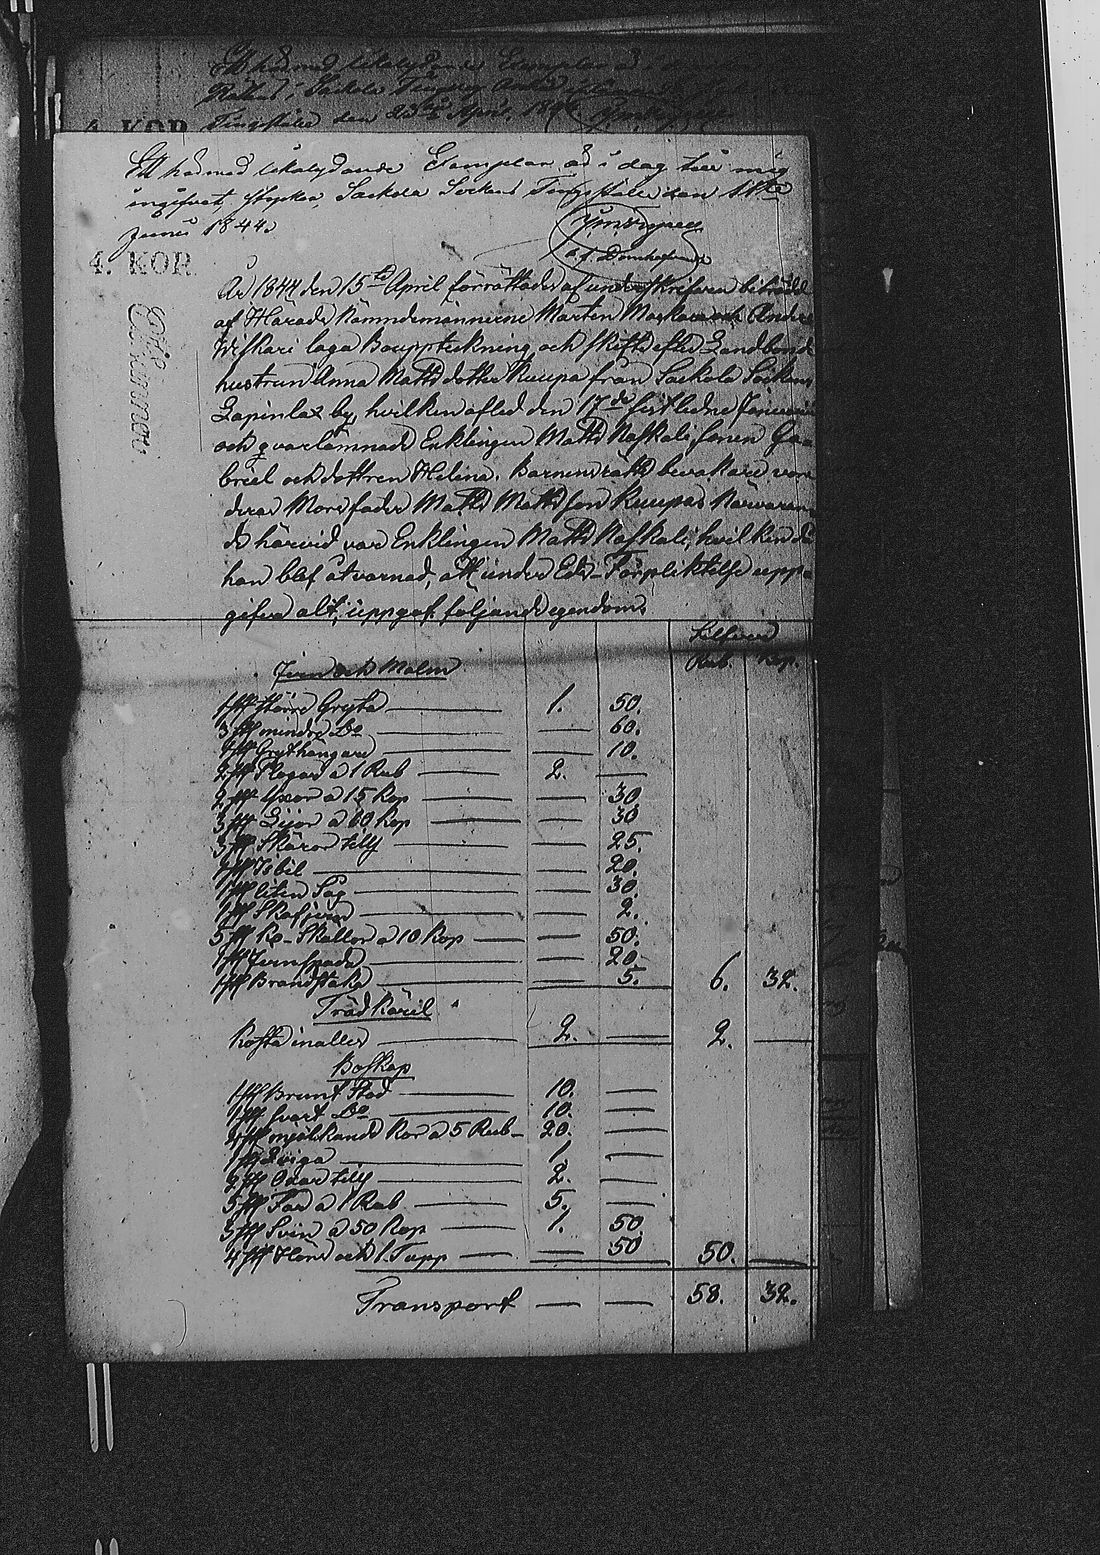 Ett härmed likalydande Exemplar
Sackola Tingslag
Tingställe den 23 April 184
4. KOR
Ett härmed likalydande Exemplar är i dag till mig
ingifvet, styrker, Sackola Sockens Tingställe den 11te
Junii 1844.
4. KOR
År 1844 den 15de April förrättades af undertecknad biträdd
af Härads Nämndemännerne Mårten Moskari och Anders
Wiskari laga Bouppteckning och skifte efter Landbonde
hustrun Anna Matts dotter Ruupa från Sackola Sockens
Lapinlax by, hvilken afled den 17de sistledne Januarii
och qvarlämnade Enklingen Matts Naskali sonen Ga-
briel och dottren Helena. Barnens rätts bevakare var
deras Morsfader Matts Mattsson Ruupa. Närvaran-
de härvid var Enklingen Matts Naskali, hvilken då
han blef åtvarnad, att under Eds-Förpliktelse upp-
gifva alt, uppgaf följande egendom.
Silfver
Rub. Kop.
Jern och Malm
1 st större Gryta 1. 50.
3 st mindre Do — 60.
1 st Grythängare — 10.
2 st Plogar a 1 Rub 2. —
2 st Yxor a 15 Kop — 30
3 st Liior a 10 Kop — 30
5 st Skäror till — 25.
1 st Töbil — 20.
1 st liten Såg — 30.
1 st Skafjern — 2.
5 st Ko-Skällor a 10 Kop — 50.
1 st Jernspade — 20
1 st Brandstake — 5. 6. 32.
Trädkäril
Kosta inalles 2. — 2. —
Boskap
1 st Brunt Stod 10. —
1 st svart Do 10. —
4 st mjölkande Kor a 5 Rub 20. —
1 st Qviga 1 —
2 st Oxar till 2. —
5 st Får a 1 Rub 5. —
3 st Svin a 50 Kop 1. 50
4 st Höns och 1 Tupp — 50 50. —
Transport — — 58. 32.